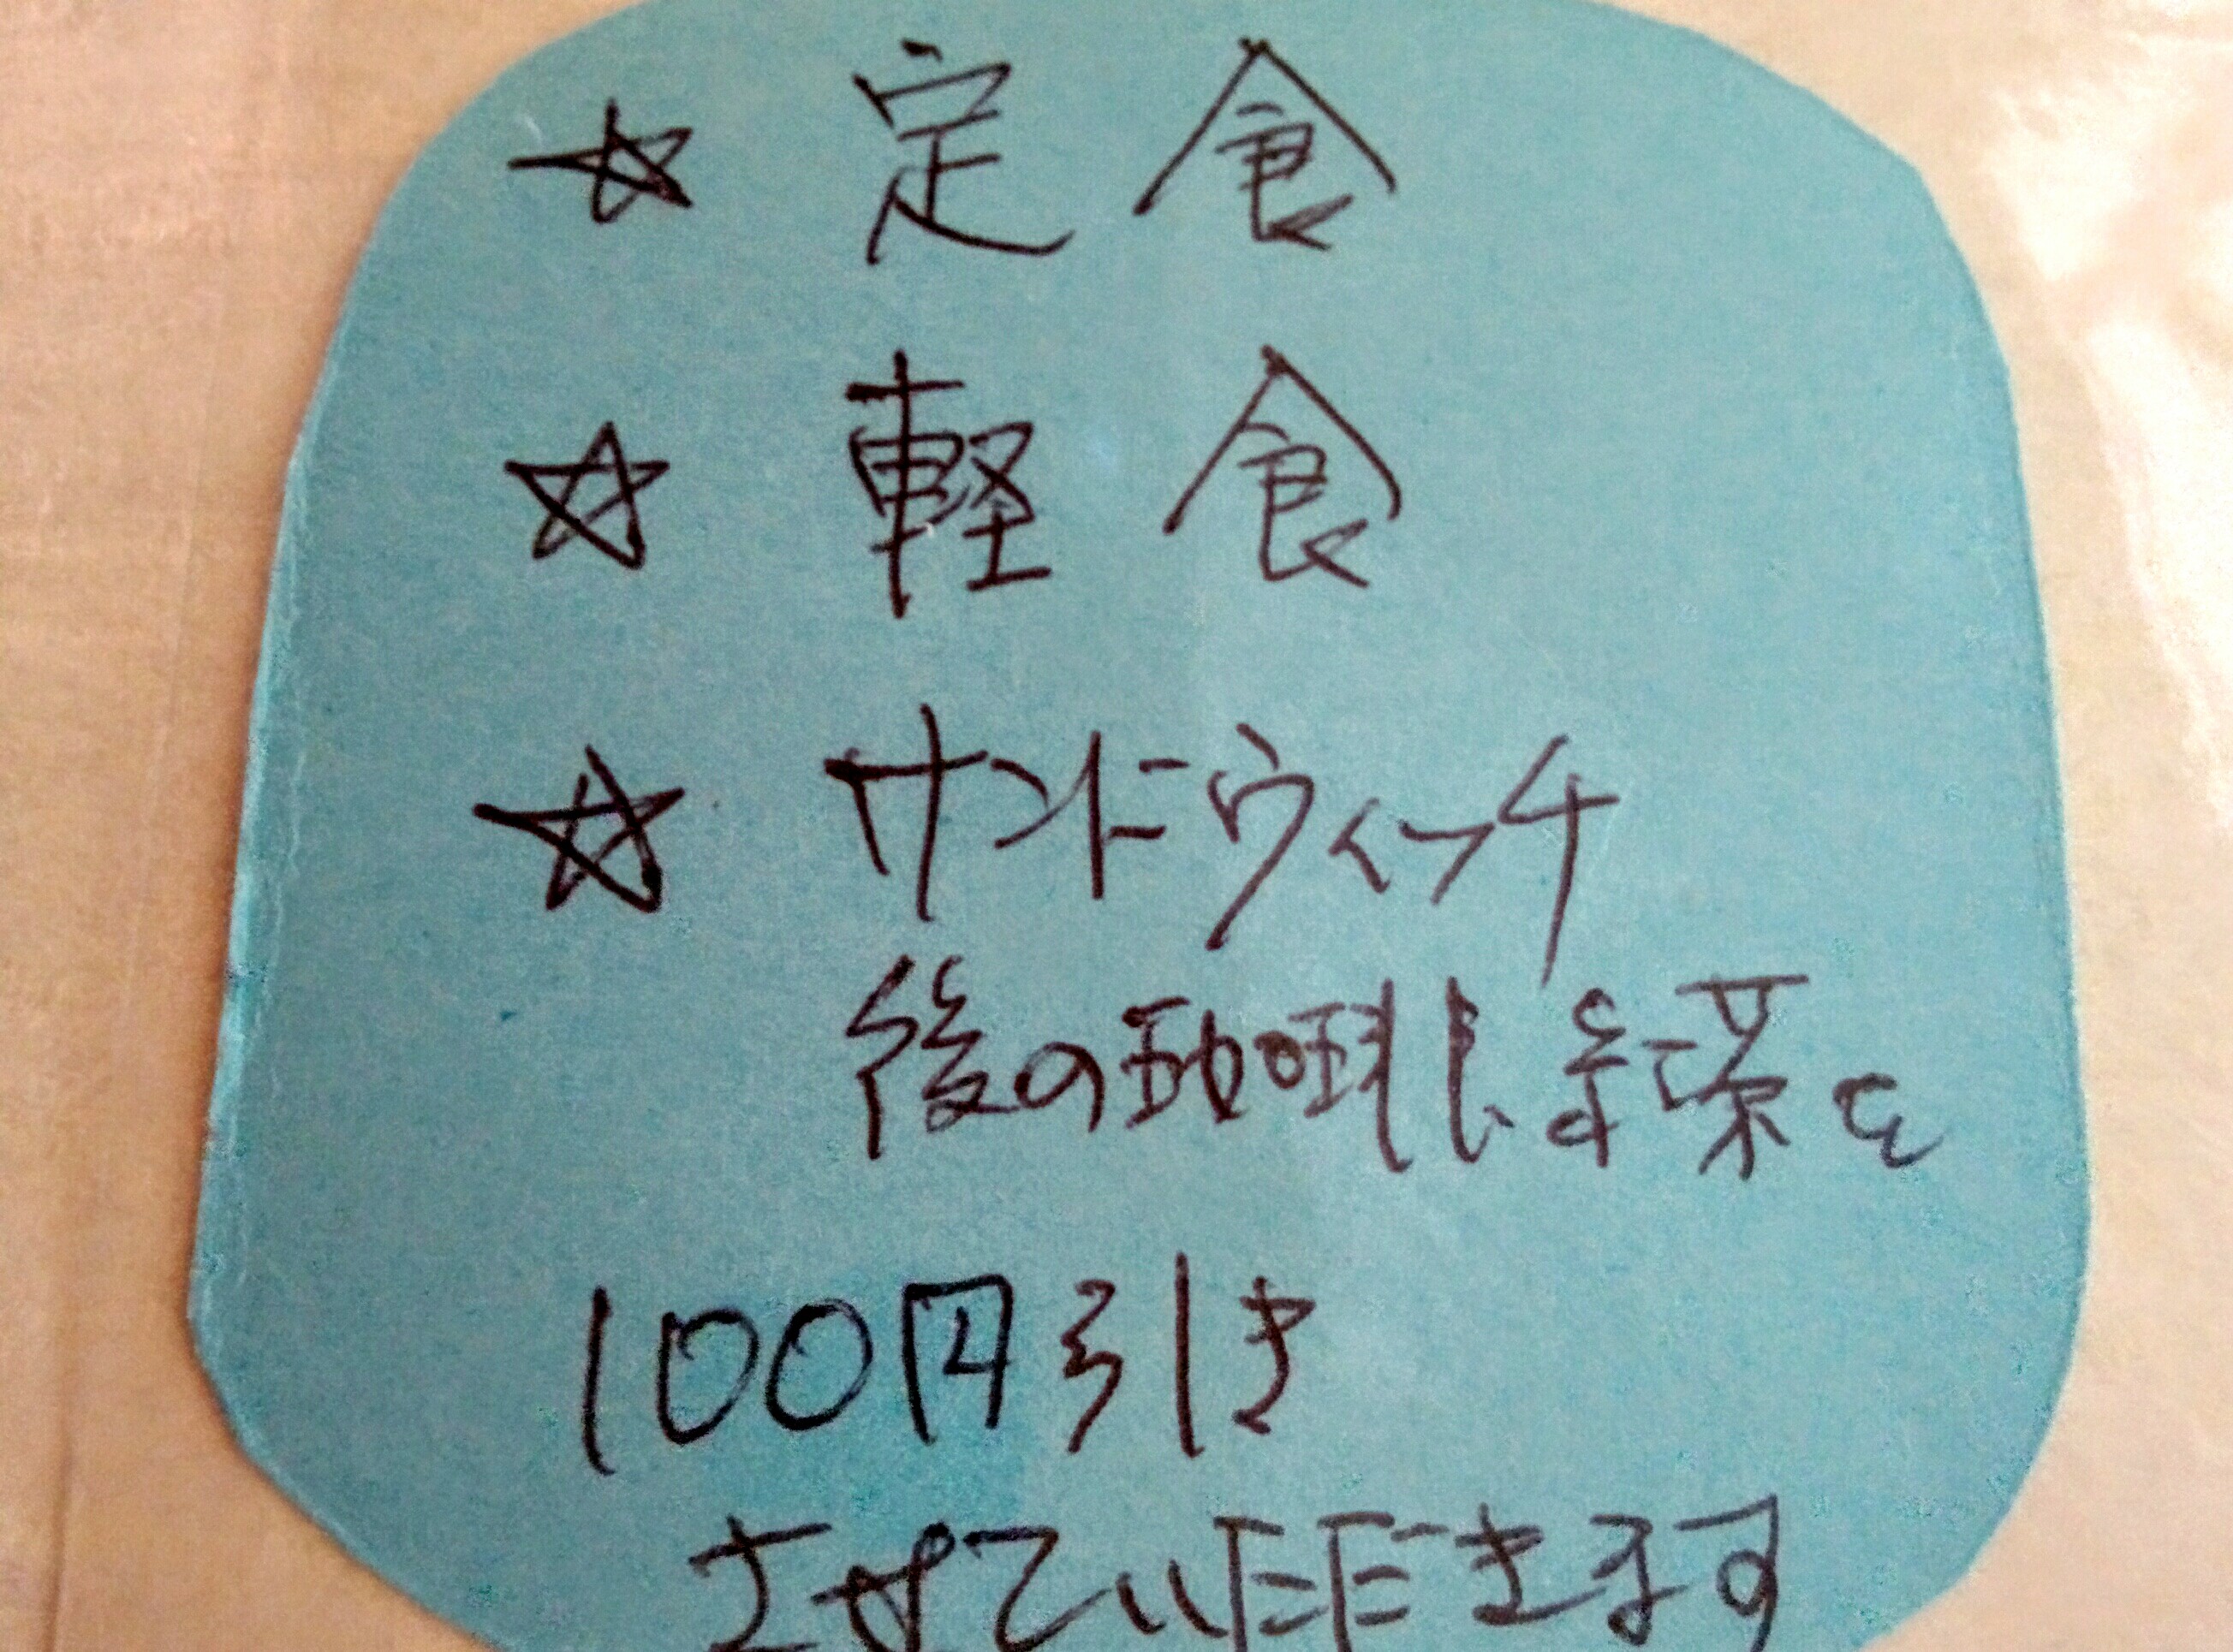 ☆ 定食
☆ 軽食
☆ サンドウィッチ
後の珈琲、紅茶を
100円引き
させていただきます